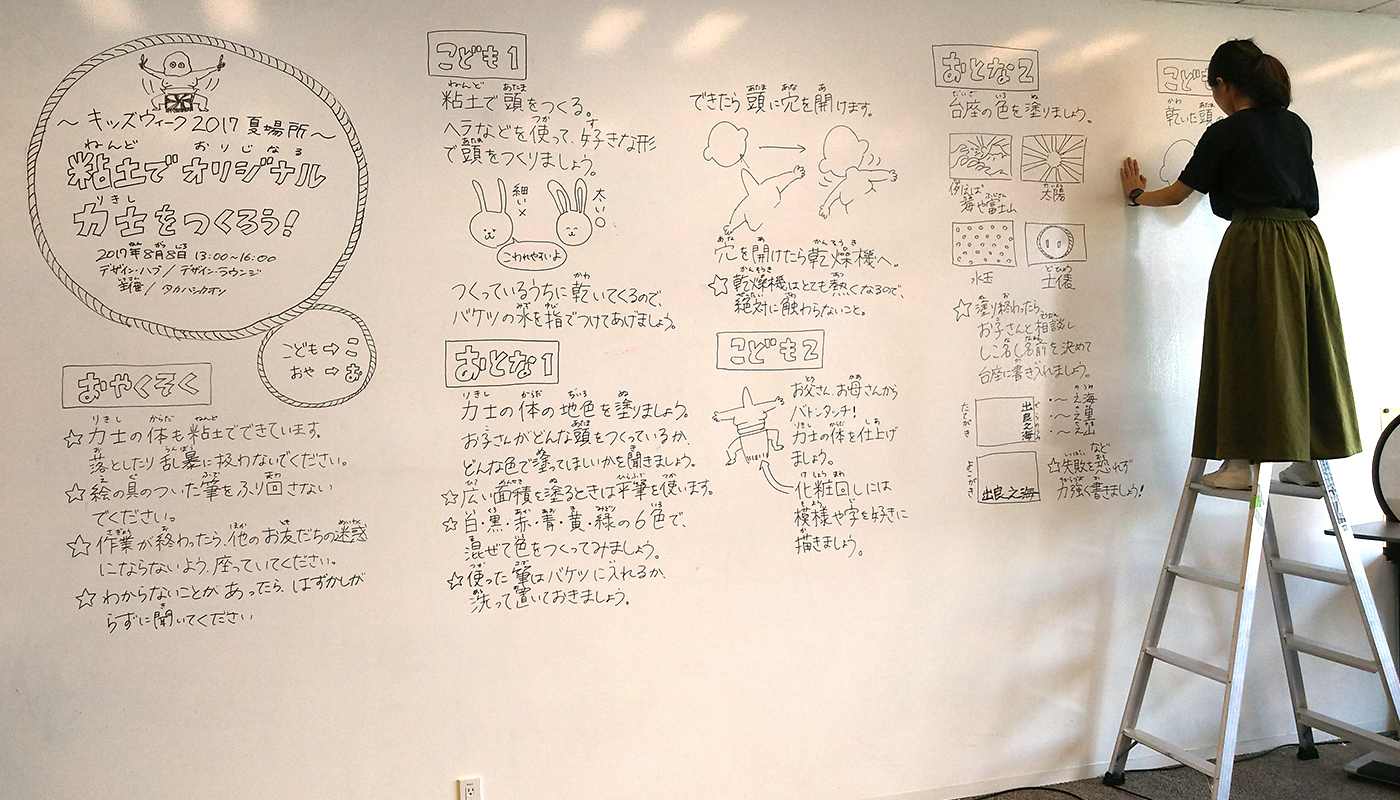 〜キッズウィーク2017夏場所〜
粘土でオリジナル
ねんど おりじなる
力士をつくろう!
りきし
2017年8月8日 13:00〜16:00
デザイン・ハブ/デザイン・ラウンジ
タカハシカオリ
こども⇒こ
おや⇒お
おやくそく
☆力士の体も粘土でできています。
落としたり乱暴に扱わないでください。
☆絵の具のついた筆をふり回さない
でください。
☆作業が終わったら、他のお友だちの迷惑
にならないよう、座っていてください。
☆わからないことがあったら、はずかしが
らずに聞いてください
こども1
粘土で頭をつくる。
ヘラなどを使って、好きな形
で頭をつくりましょう。
細い×
太い○
こわれやすいよ
つくっているうちに乾いてくるので、
バケツの水を指でつけてあげましょう。
おとな1
力士の体の地色を塗りましょう。
お子さんがどんな頭をつくっているか、
どんな色で塗ってほしいかを聞きましょう。
☆広い面積を塗るときは平筆を使います。
☆白・黒・赤・青・黄・緑の6色で、
混ぜて色をつくってみましょう。
☆使った筆はバケツに入れるか、
洗って置いておきましょう。
できたら頭に穴を開けます。
穴を開けたら乾燥機へ。
☆乾燥機はとても熱くなるので、
絶対に触わらないこと。
こども2
お父さん、お母さんから
バトンタッチ!
力士の体を仕上げ
ましょう。
化粧回しには
模様や字を好きに
描きましょう。
おとな2
台座の色を塗りましょう。
例えば
海や富士山
太陽
水玉
土俵
☆塗り終わったら、
お子さんと相談し
しこ名し名前を決めて
台座に書き入れましょう。
たてがき
出良之海
・〜之海
・〜之里
・〜之山
など
よこがき
出良之海
☆失敗を恐れず
力強く書きましょう!
こども
乾いた頭